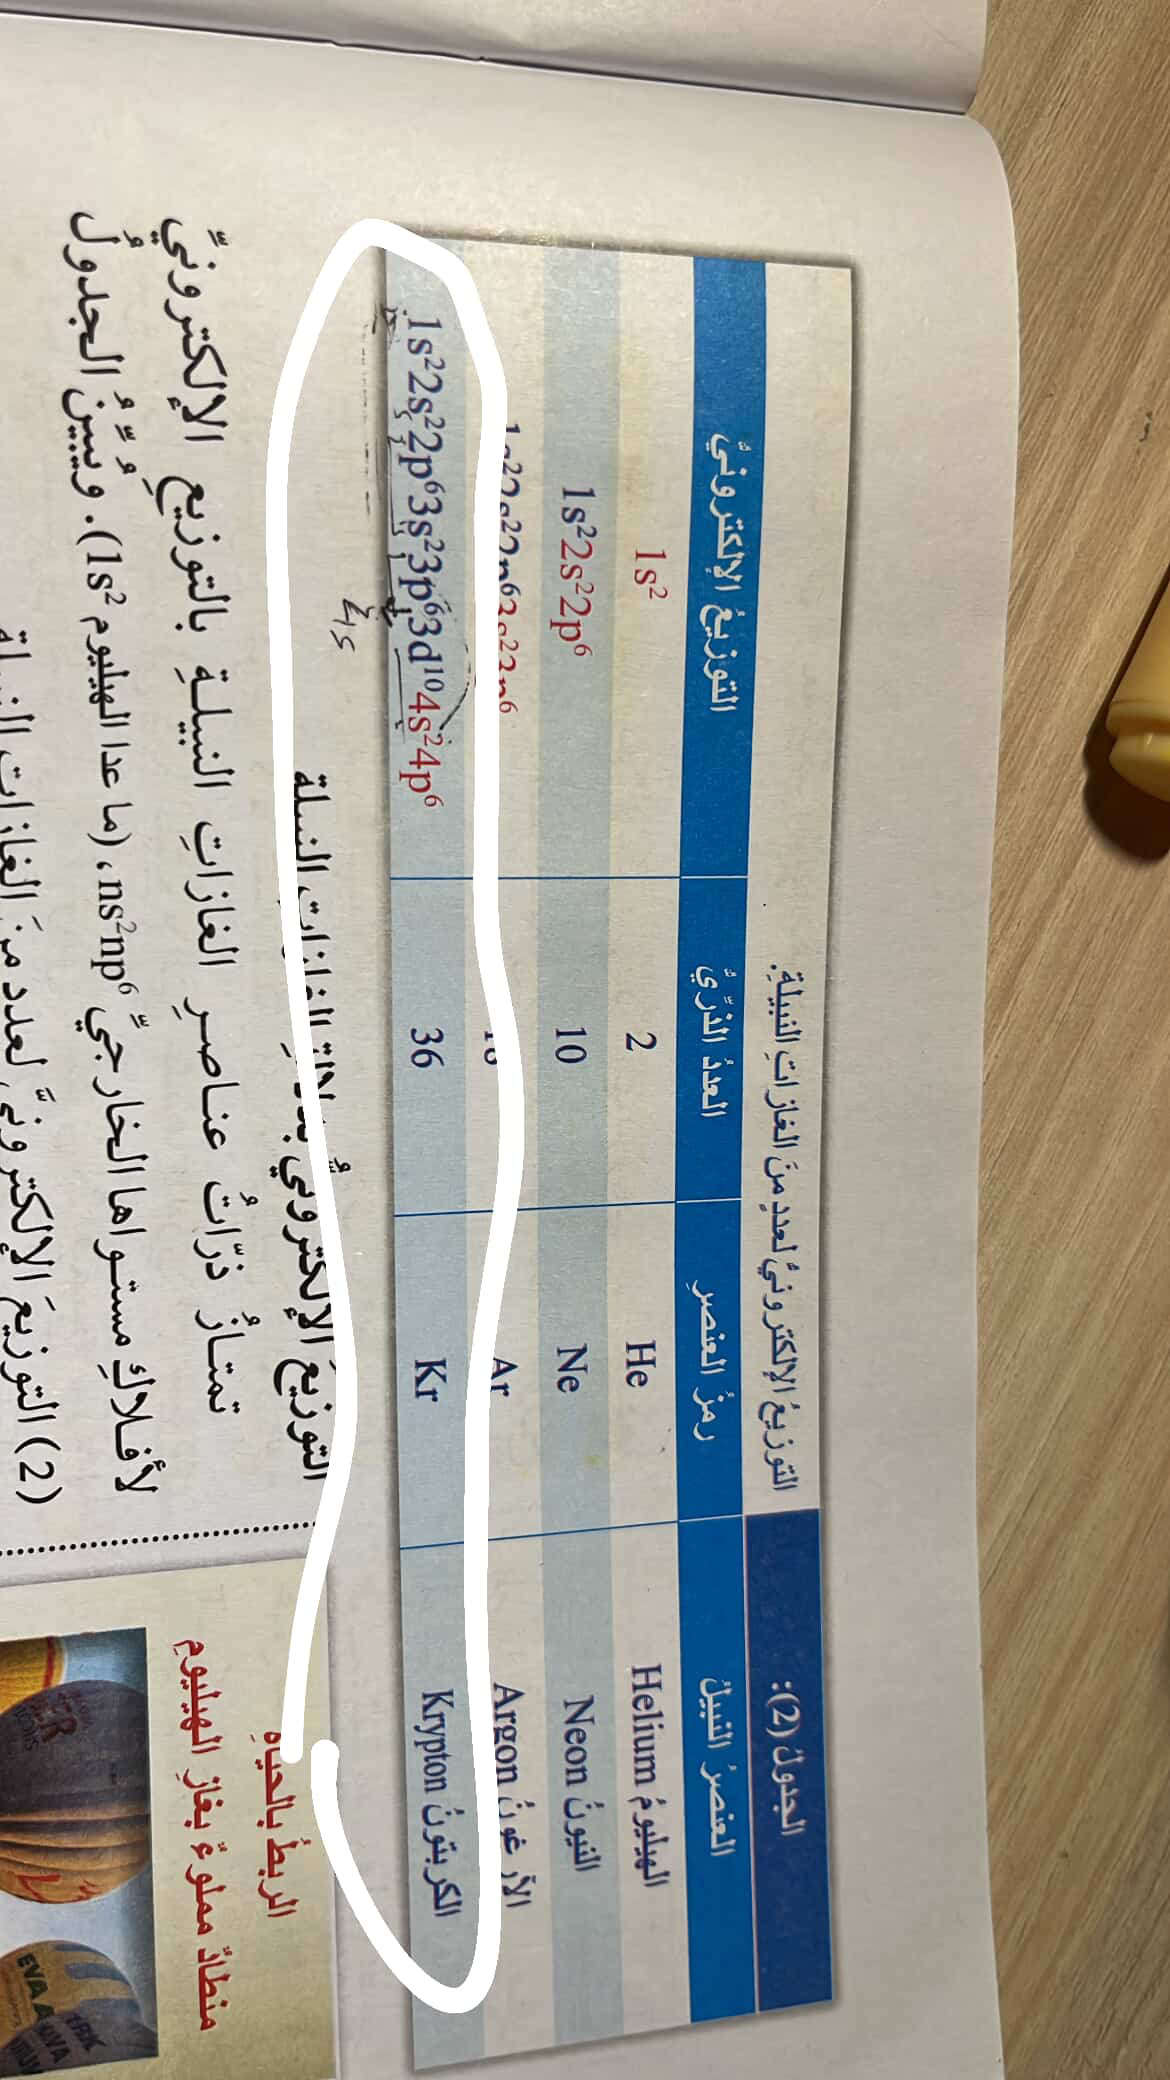 الجدولُ (2): التوزيعُ الإلكترونيُّ لعددٍ منَ الغازاتِ النبيلةِ.
العنصرُ النبيلُ رمزُ العنصرِ العددُ الذرّيُّ التوزيعُ الإلكترونيُّ
الهيليومُ Helium He 2 1s²
النيونُ Neon Ne 10 1s²2s²2p⁶
الآرغونُ Argon Ar
الكربتونُ Krypton Kr 36 1s²2s²2p⁶3s²3p⁶3d¹⁰4s²4p⁶
4s
التوزيعُ الإلكترونيُّ بدلالةِ الغازات النبيلة
تمتازُ ذرّاتُ عناصرِ الغازاتِ النبيلةِ بالتوزيعِ الإلكترونيِّ
لأفلاكِ مستواها الخارجيِّ ns²np⁶، (ما عدا الهيليوم 1s²). ويبيّنُ الجدولُ
(2) التوزيعَ الإلكترونيَّ لعددٍ منَ الغازات النبيلة
الربطُ بالحياةِ
منطادٌ مملوءٌ بغازِ الهيليومِ
EVA A
TRK